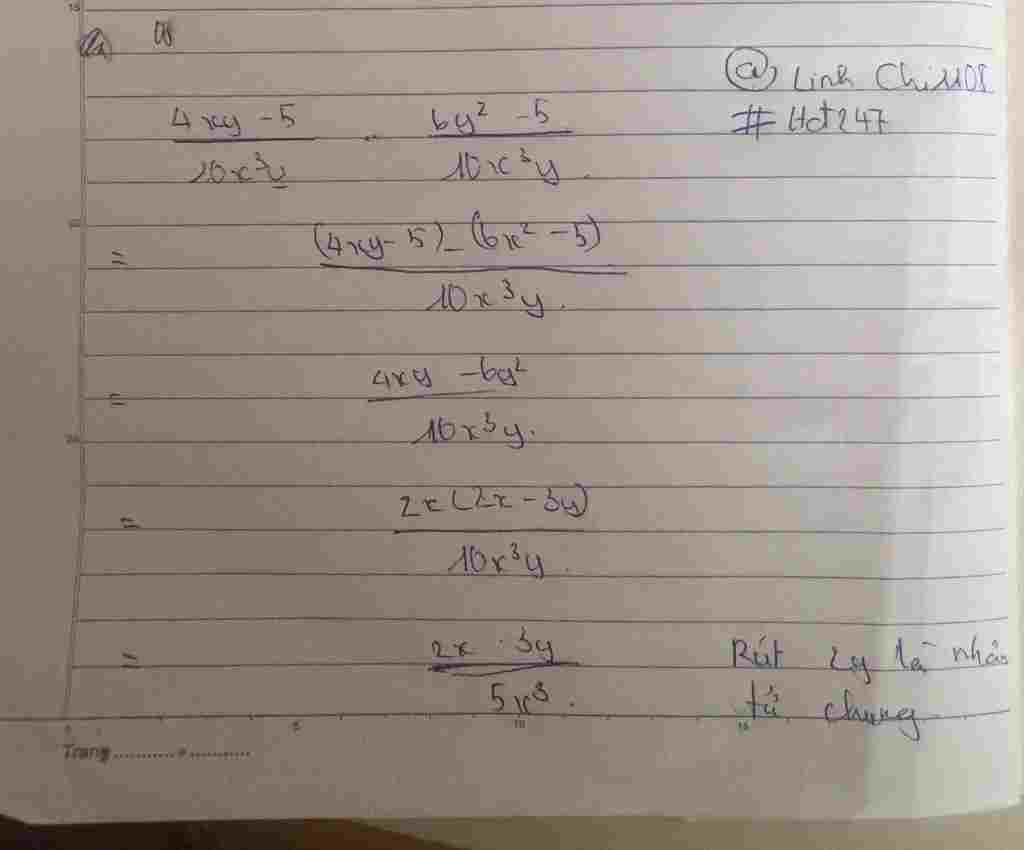 @ Linh Chi1108
# Hot247
4xy - 5 / 10x³y - 6y² - 5 / 10x³y.
= (4xy - 5) - (6x² - 5) / 10x³y.
= 4xy - 6y² / 10x³y.
= 2x(2x - 3y) / 10x³y.
= 2x - 3y / 5x³.
Rút 2y là nhân
tử chung
Trang